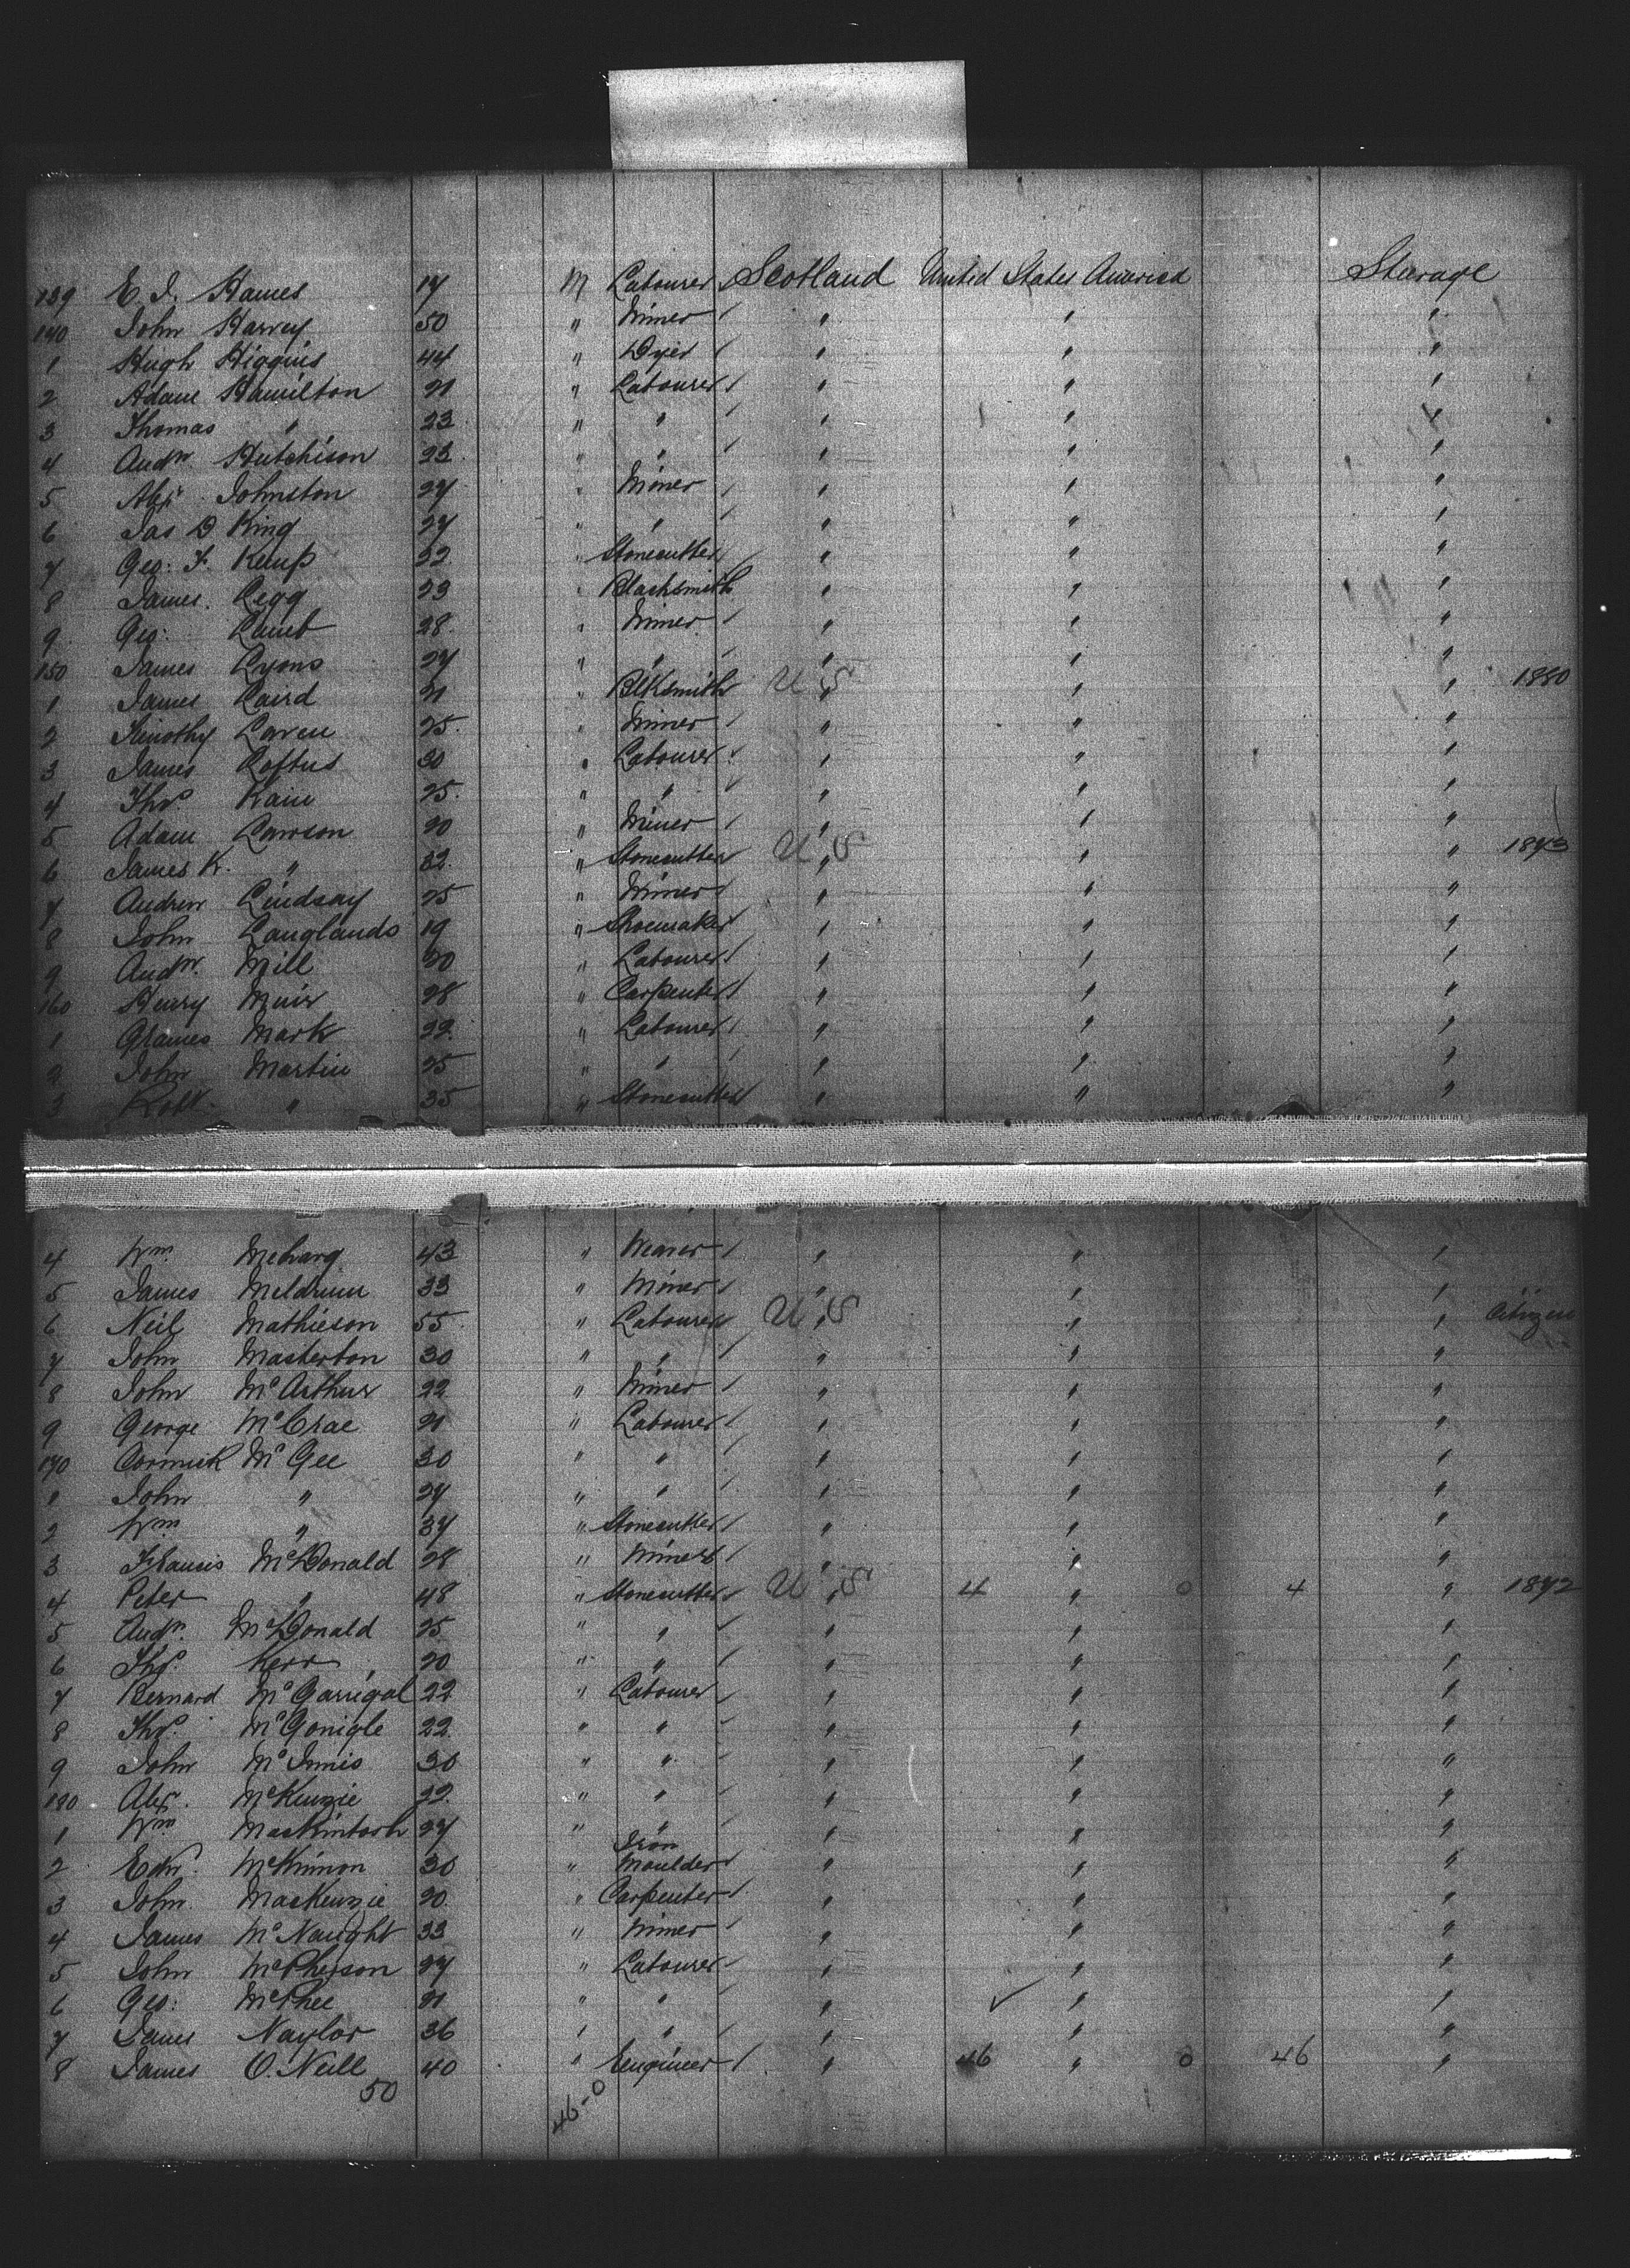 139 E. J. Hames 17 M Labourer Scotland United States America Steerage
140 John Harvey 50 " Miner " " "
1 Hugh Higgins 44 " Dyer " " "
2 Adam Hamilton 21 " Labourer " " "
3 Thomas " 23 " " " " "
4 Andw Hutchison 23 " " " " "
5 Alexr Johnston 27 " Miner " " "
6 Jas D King 27 " " " " "
7 Geo: F. Kemp 22 " Stonecutter " " "
8 James Legg 23 " Blacksmith " " "
9 Geo: Lamb 28 " Miner " " "
150 James Lyons 27 " " " " "
1 James Laird 21 " Blksmith U " S " 1880
2 Timothy Laven 25 " Miner " " "
3 James Loftus 30 " Labourer " " "
4 Thos Kain 25 " " " " "
5 Adam Lawson 20 " Miner " " "
6 James K. " 32 " Stonecutter U " S " " 1873
7 Andrew Lindsay 25 " Miner " " "
8 John Langlands 19 " Shoemaker " " "
9 Andw. Mill 20 " Labourer " " "
160 Henry Muir 28 " Carpenter " " "
1 Grames Mark 22 " Labourer " " "
2 John Martin 25 " " " " "
3 Robt. " 35 " Stonecutter " " "
4 Wm Meharg 43 " Weaver " " "
5 James Meldrum 33 " Miner " " "
6 Neil Mathieson 55 " Labourer U " S " " Citizen
7 John Masterton 30 " " " " "
8 John McArthur 22 " Miner " " "
9 George McCrae 21 " Labourer " " "
170 Cormick McGee 30 " " " " "
1 John " 27 " " " " "
2 Wm " 37 " Stonecutter " " "
3 Francis McDonald 28 " Miner " " "
4 Peter " 48 " Stonecutter U " S 4 " 0 4 " 1872
5 Andw. McDonald 25 " " " " "
6 Thos. Kerr 20 " " " " "
7 Bernard McGarrigal 22 " Labourer " " "
8 Thos. McGonigle 22 " " " " "
9 John McInnis 30 " " " " "
180 Alex. McKenzie 22 " " " " "
1 Wm Mackintosh 27 " " " " "
2 Edw. McKinnon 30 " Iron Moulder " " "
3 John MacKenzie 20 " Carpenter " " "
4 James McNaught 33 " Miner " " "
5 John McPherson 27 " Labourer " " "
6 Geo: McPhee 21 " " " ✓ " "
7 James Naylor 36 " " " " "
8 James O.Neill 40 " Engineer " 46 " 0 46 "
50 46-0